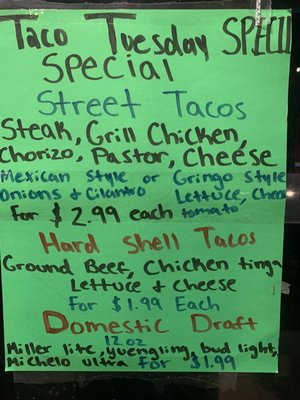 Taco Tuesday SPECIL
Special
Street Tacos
Steak, Grill Chicken,
Chorizo, Pastor, Cheese
Mexican Style or Gringo Style
Onions & Cilantro Lettuce, Chees
For $2.99 each tomato
Hard Shell Tacos
Ground Beef, Chicken tinga
Lettuce & Cheese
For $1.99 Each
Domestic Draft
12 oz
Miller lite, yuengling, bud light,
Michelo ultra For $1.99